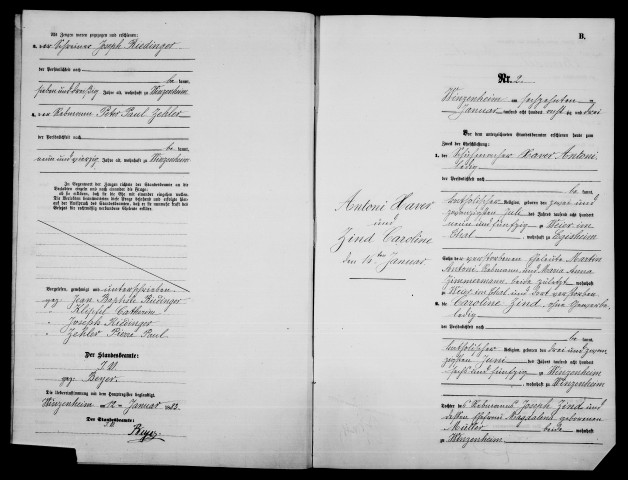 Als Zeugen waren zugezogen und erschienen:
3. der Schreiner Joseph Riedinger
der Persönlichkeit nach
be kannt,
sieben und dreißig Jahre alt, wohnhaft zu Winzenheim
4. der Rebmann Peter Paul Zehler
der Persönlichkeit nach
be kannt,
neun und vierzig Jahre alt, wohnhaft zu Winzenheim
In Gegenwart der Zeugen richtete der Standesbeamte an die
Verlobten einzeln und nach einander die Frage:
ob sie erklären, daß sie die Ehe mit einander eingehen wollen.
Die Verlobten beantworteten diese Frage bejahend und erfolgte hierauf
der Ausspruch des Standesbeamten, daß er sie nunmehr kraft des
Gesetzes für rechtmäßig verbundene Eheleute erkläre.
Vorgelesen, genehmigt und unterschrieben
gez. Jean Baptiste Riedinger
" Klipfel Catherine
" Joseph Riedinger
" Zehler Pierre Paul
Der Standesbeamte:
I. V.
gez. Beyer.
Die Uebereinstimmung mit dem Hauptregister beglaubigt.
Winzenheim am 12 ten Januar 1883.
Der Standesbeamte:
I. V.
Beyer
Antoni Xaver
und
Zind Caroline
den 16ten Januar
B.
Nr. 2.
Winzenheim am sechszehnten
Januar tausend acht hundert acht zig und drei
Vor dem unterzeichneten Standesbeamten erschienen heute zum
Zweck der Eheschließung:
1. der Xaver Antoni,
ledig
der Persönlichkeit nach
be kannt,
katholischer Religion, geboren den zwei und
zwanzigsten Juli des Jahres tausend acht hundert
neun und fünfzig zu Weier im
Thal, wohnhaft zu Egisheim
Sohn des verstorbenen Eheleute Martin
Antoni, Rebmann, und Maria Anna
Zimmermann, beide zuletzt wohnhaft
zu Weier im Thal und dort verstorben
2. die Caroline Zind, ohne Gewerbe,
ledig
der Persönlichkeit nach
be kannt,
katholischer Religion, geboren den drei und zwan-
zigsten Juni des Jahres tausend acht hundert
sechs und fünfzig zu Winzenheim
wohnhaft zu Winzenheim
Tochter des Rebmanns Joseph Zind und
dessen Ehefrau Magdalena geborenen
Müller beide wohnhaft
zu Winzenheim.